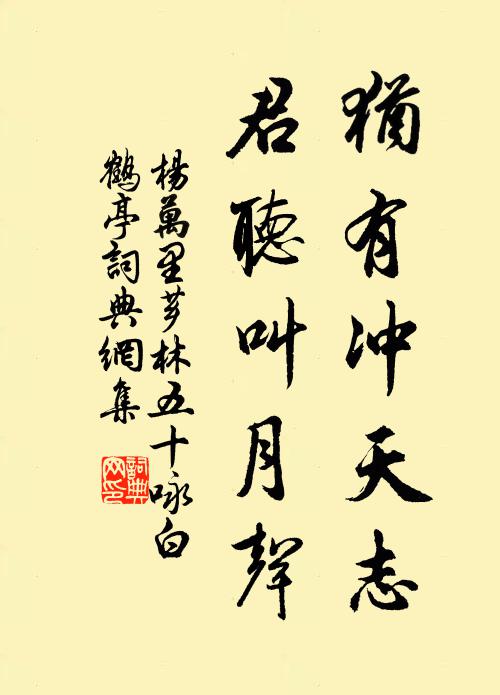 猶有冲天志
君聽叫月聲
楊萬里芗林五十咏白
鶴亭詞典網集
詞典網印